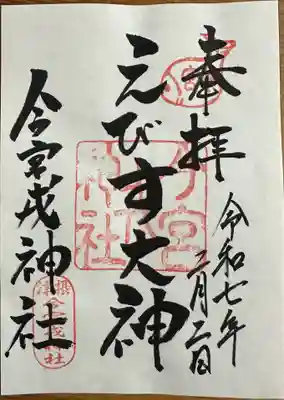 奉拝
令和七年
二月二日
えびす大神
今宮戎神社
今宮
戎神社